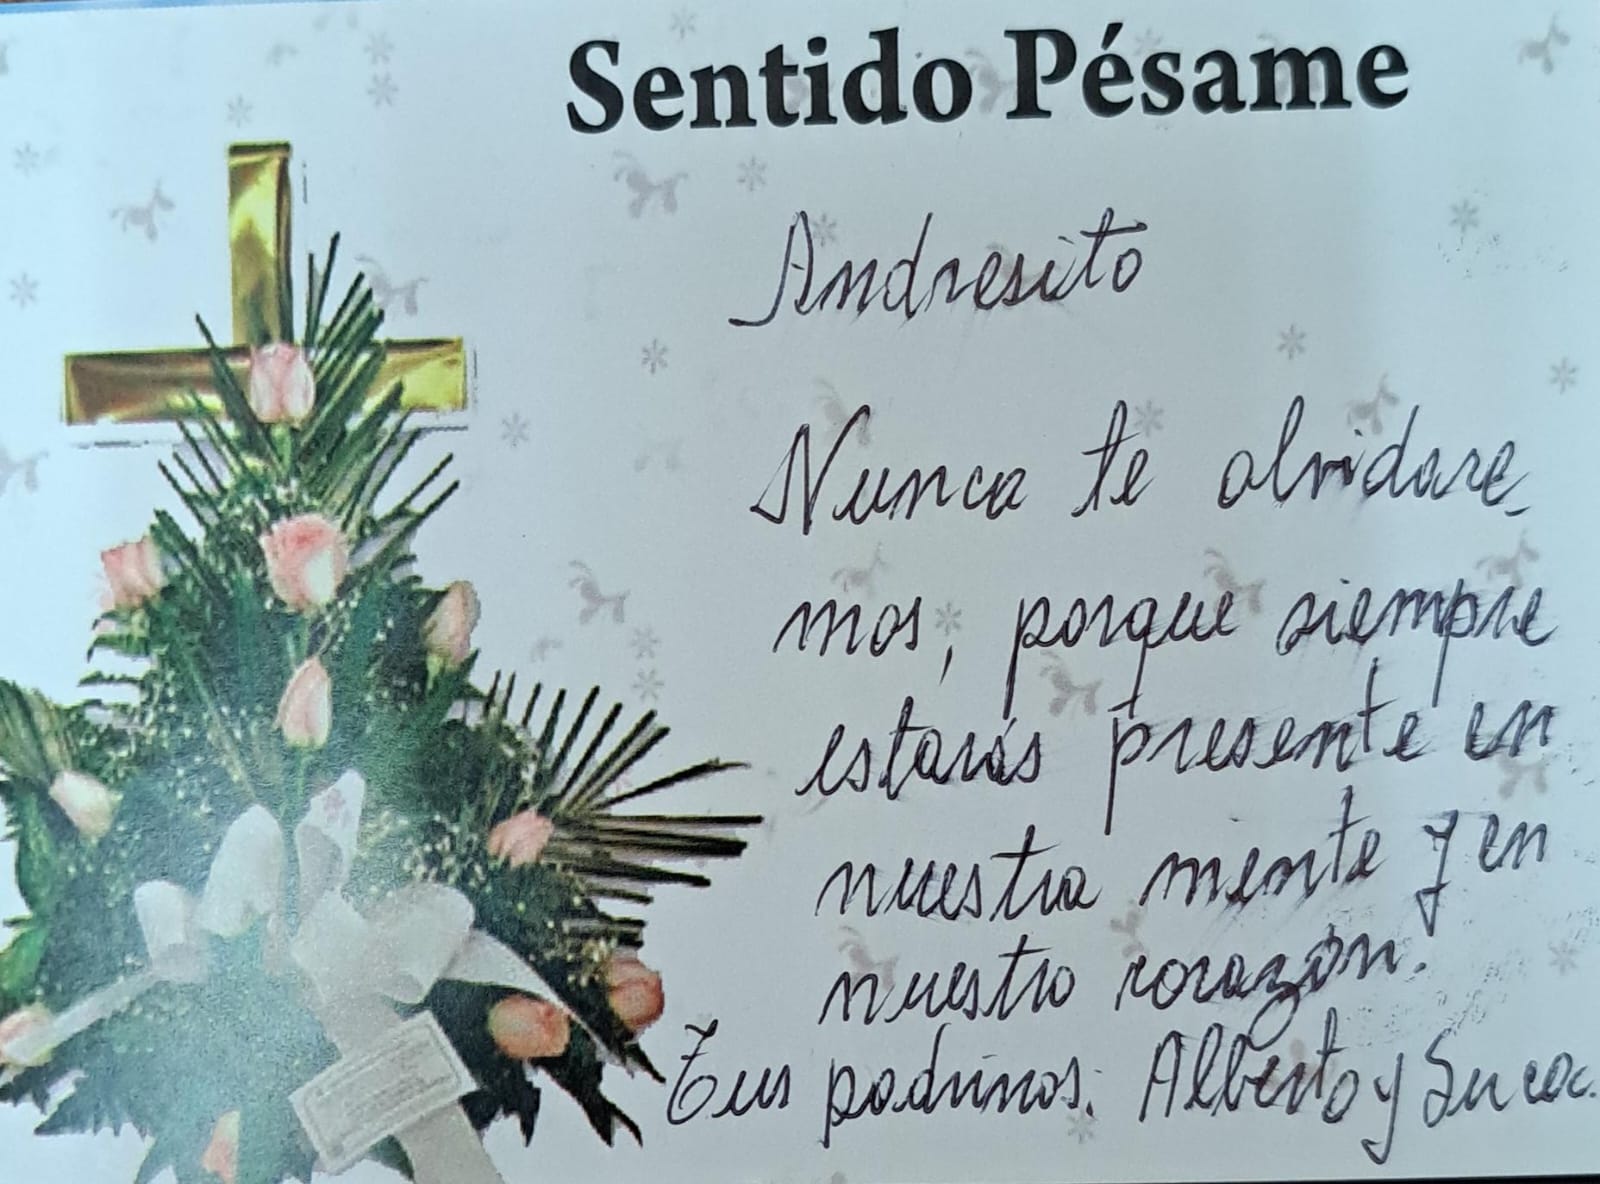 Sentido Pésame
Andresito
Nunca te olvidare_
mos, porque siempre
estarás presente en
nuestra mente y en
nuestro corazón.
Tus padrinos: Alberto y